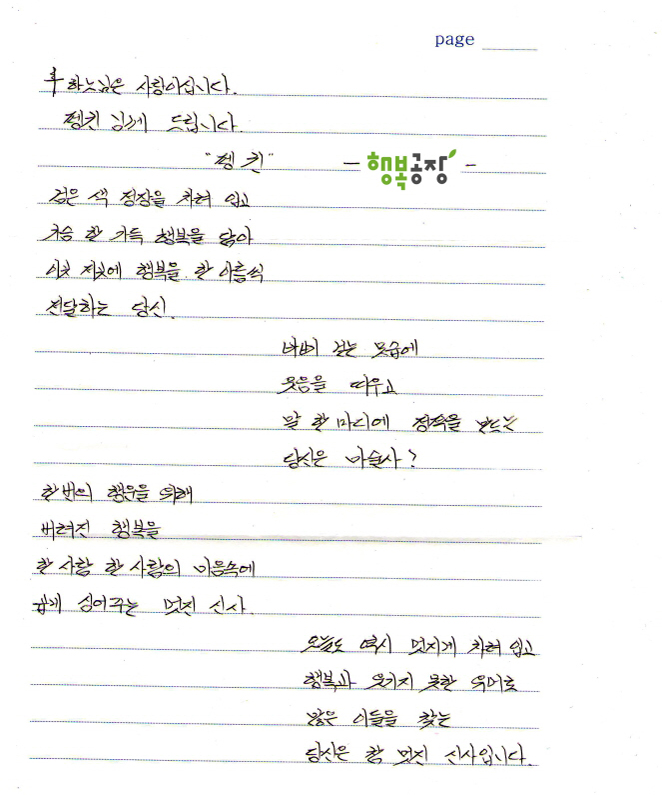 page
하느님은 사랑이십니다.
펭귄 님께 드립니다.
"펭 귄"
- 행복공장 -
검은 색 정장을 차려 입고
가슴 한 가득 행복을 담아
이곳 저곳에 행복을 한 아름씩
전달하는 당신.
바삐 걷는 모습에
웃음을 띄우고
말 한 마디에 정적을 만드는
당신은 마술사?
한번의 행운을 위해
버려진 행복을
한 사람 한 사람의 마음속에
곱게 심어주는 멋진 신사.
오늘도 역시 멋지게 차려 입고
행복과 웃기지 못한 유머로
많은 이들을 찾는
당신은 참 멋진 신사입니다.